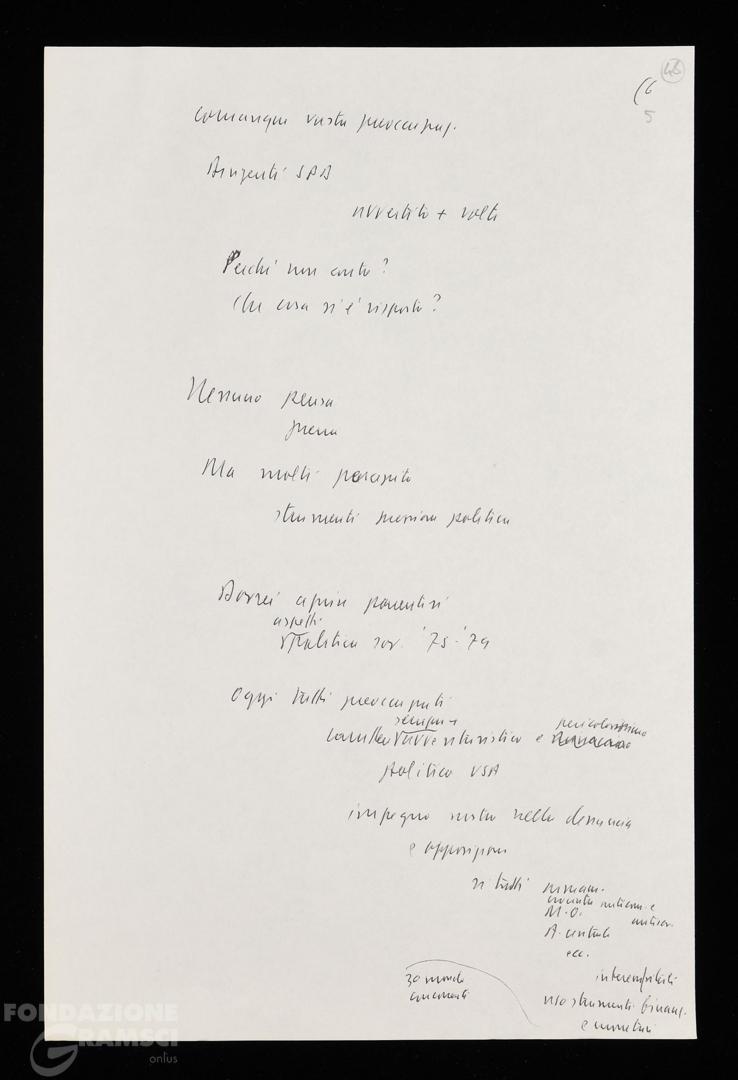 46
(6
5
comunque nostra preoccupaz.
Dirigenti SPD
avvertito + volte
Perché non conta?
Che cosa si è risposto?
Nessuno pensa
guerra
Ma molti
strumenti pressione politica
Dovrei aprire parentesi
aspetti
politica sov. '75-'79
Oggi tutti preoccupati
sempre +
carattere avventuristico e pericolosissimo
politica USA
impegno nostro nella denuncia
e opposizione
si tutti
crociata anticom. e
M.O. antisov.
A. centrale
ecc.
3o mondo
interessi
uso strumenti finanz.
e monetari
FONDAZIONE
GRAMSCI
onlus